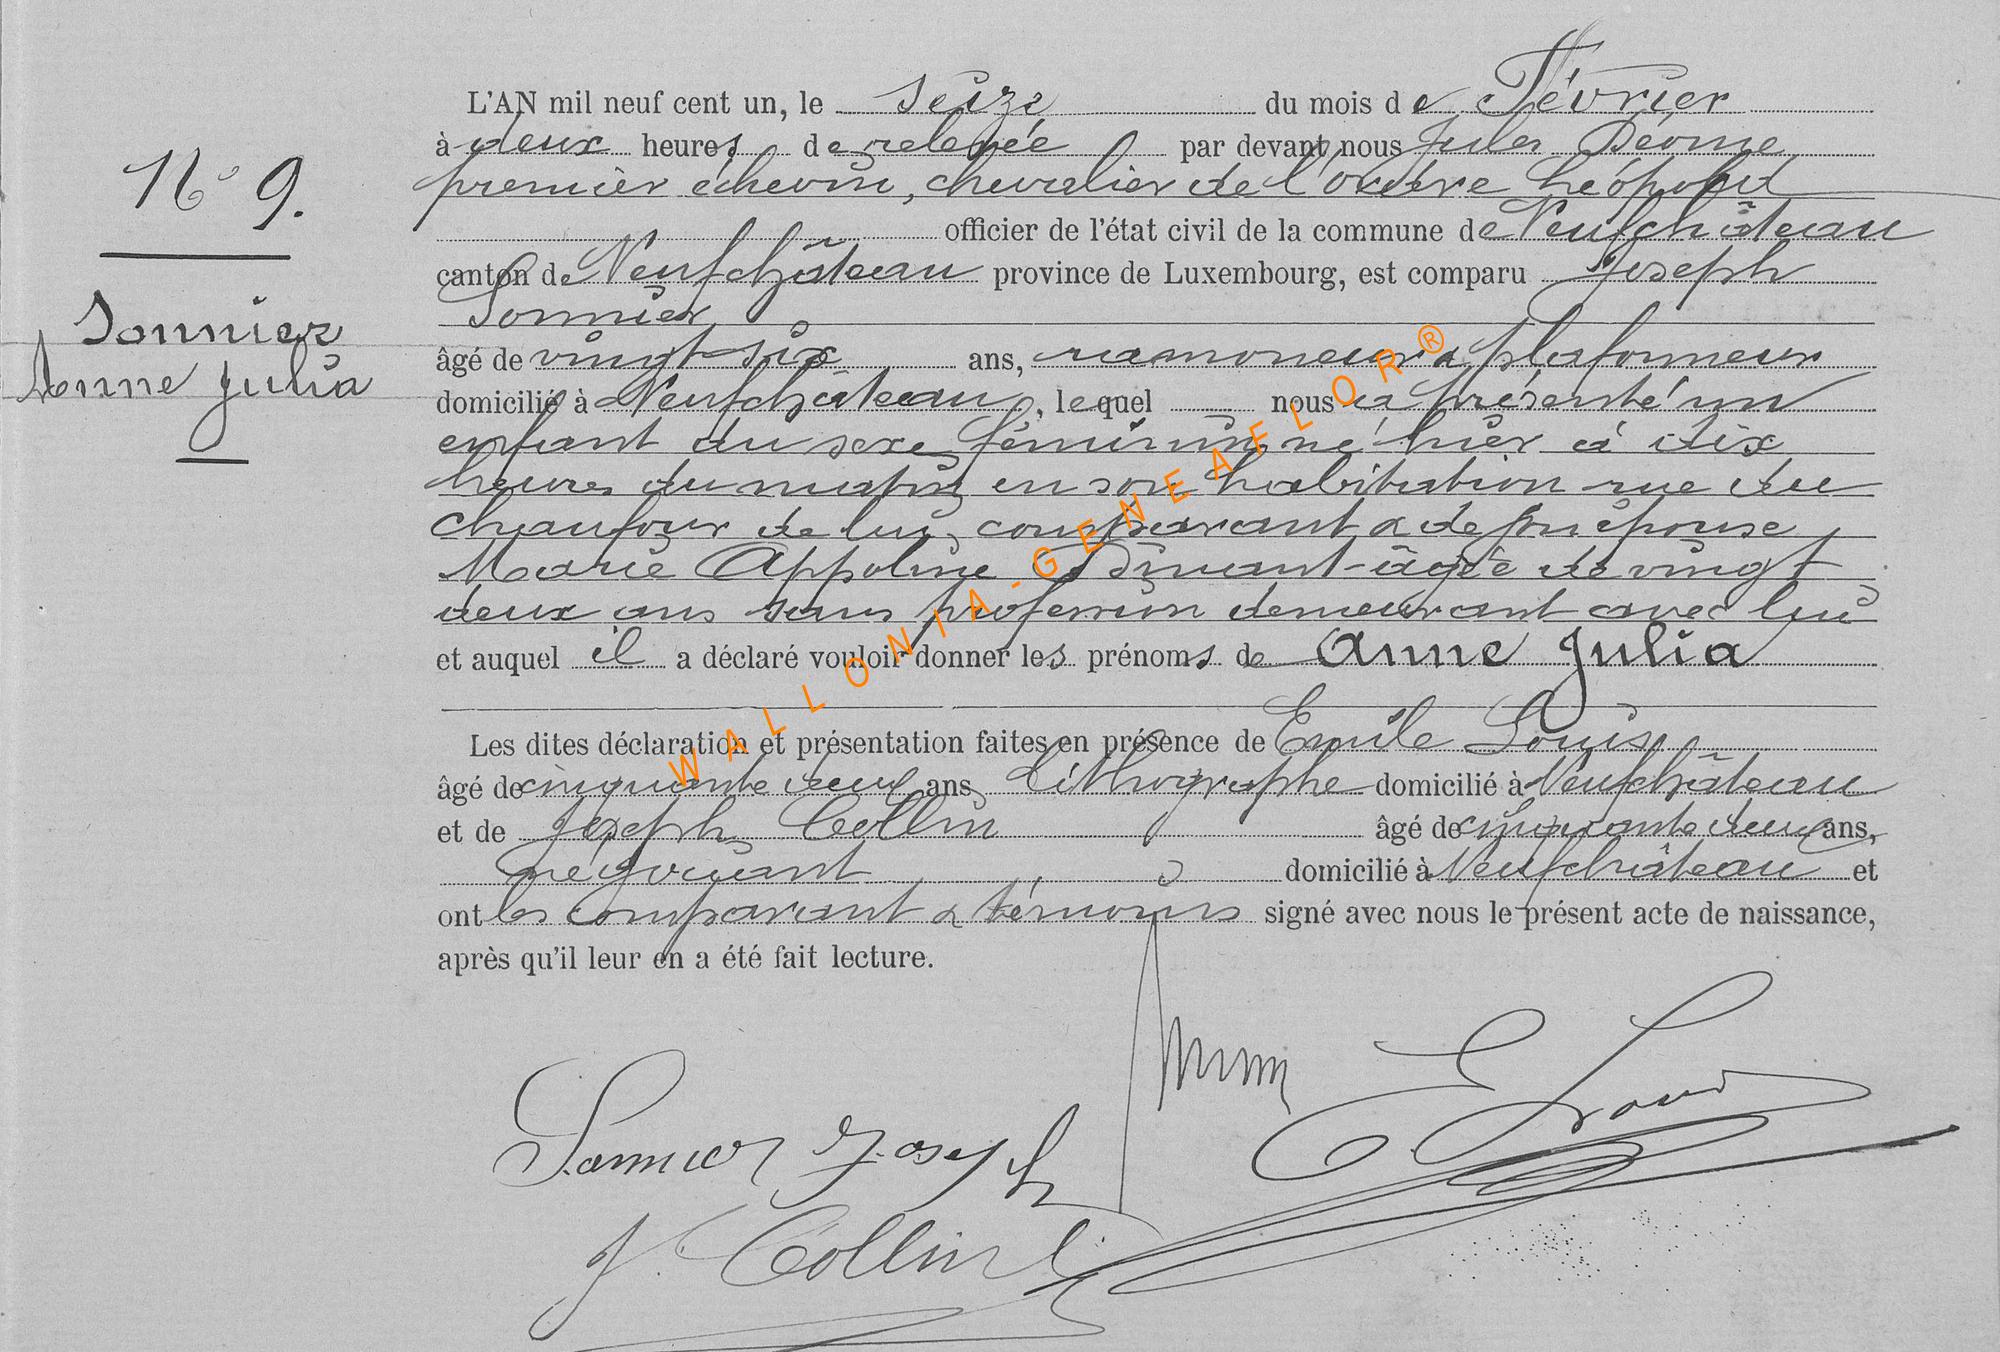 N° 9.
Sonnier
Anne Julia
L'AN mil neuf cent un, le seize du mois de Février
à deux heures de relevée par devant nous Jules
premier échevin, chevalier de l'ordre Léopold
officier de l'état civil de la commune de Neufchâteau
canton de Neufchâteau province de Luxembourg, est comparu Joseph
Sonnier
âgé de vingt-six ans, ramoneur & plafonneur
domicilié à Neufchâteau, lequel nous a présenté un
enfant du sexe féminin né hier à dix
heures du matin en son habitation rue du
chaufour de lui comparant & de son épouse
Marie Appoline Dinant âgée de vingt
deux ans sans profession demeurant avec lui
et auquel il a déclaré vouloir donner les prénoms de Anne Julia
Les dites déclaration et présentation faites en présence de Emile Louis
âgé de cinquante deux ans, lithographe domicilié à Neufchâteau
et de Joseph Collin âgé de cinquante deux ans,
négociant domicilié à Neufchâteau et
ont les comparant & témoins signé avec nous le présent acte de naissance,
après qu'il leur en a été fait lecture.
E Louis
Sonnier Joseph
J. Collin
WALLONIA-GENEAFLOR®